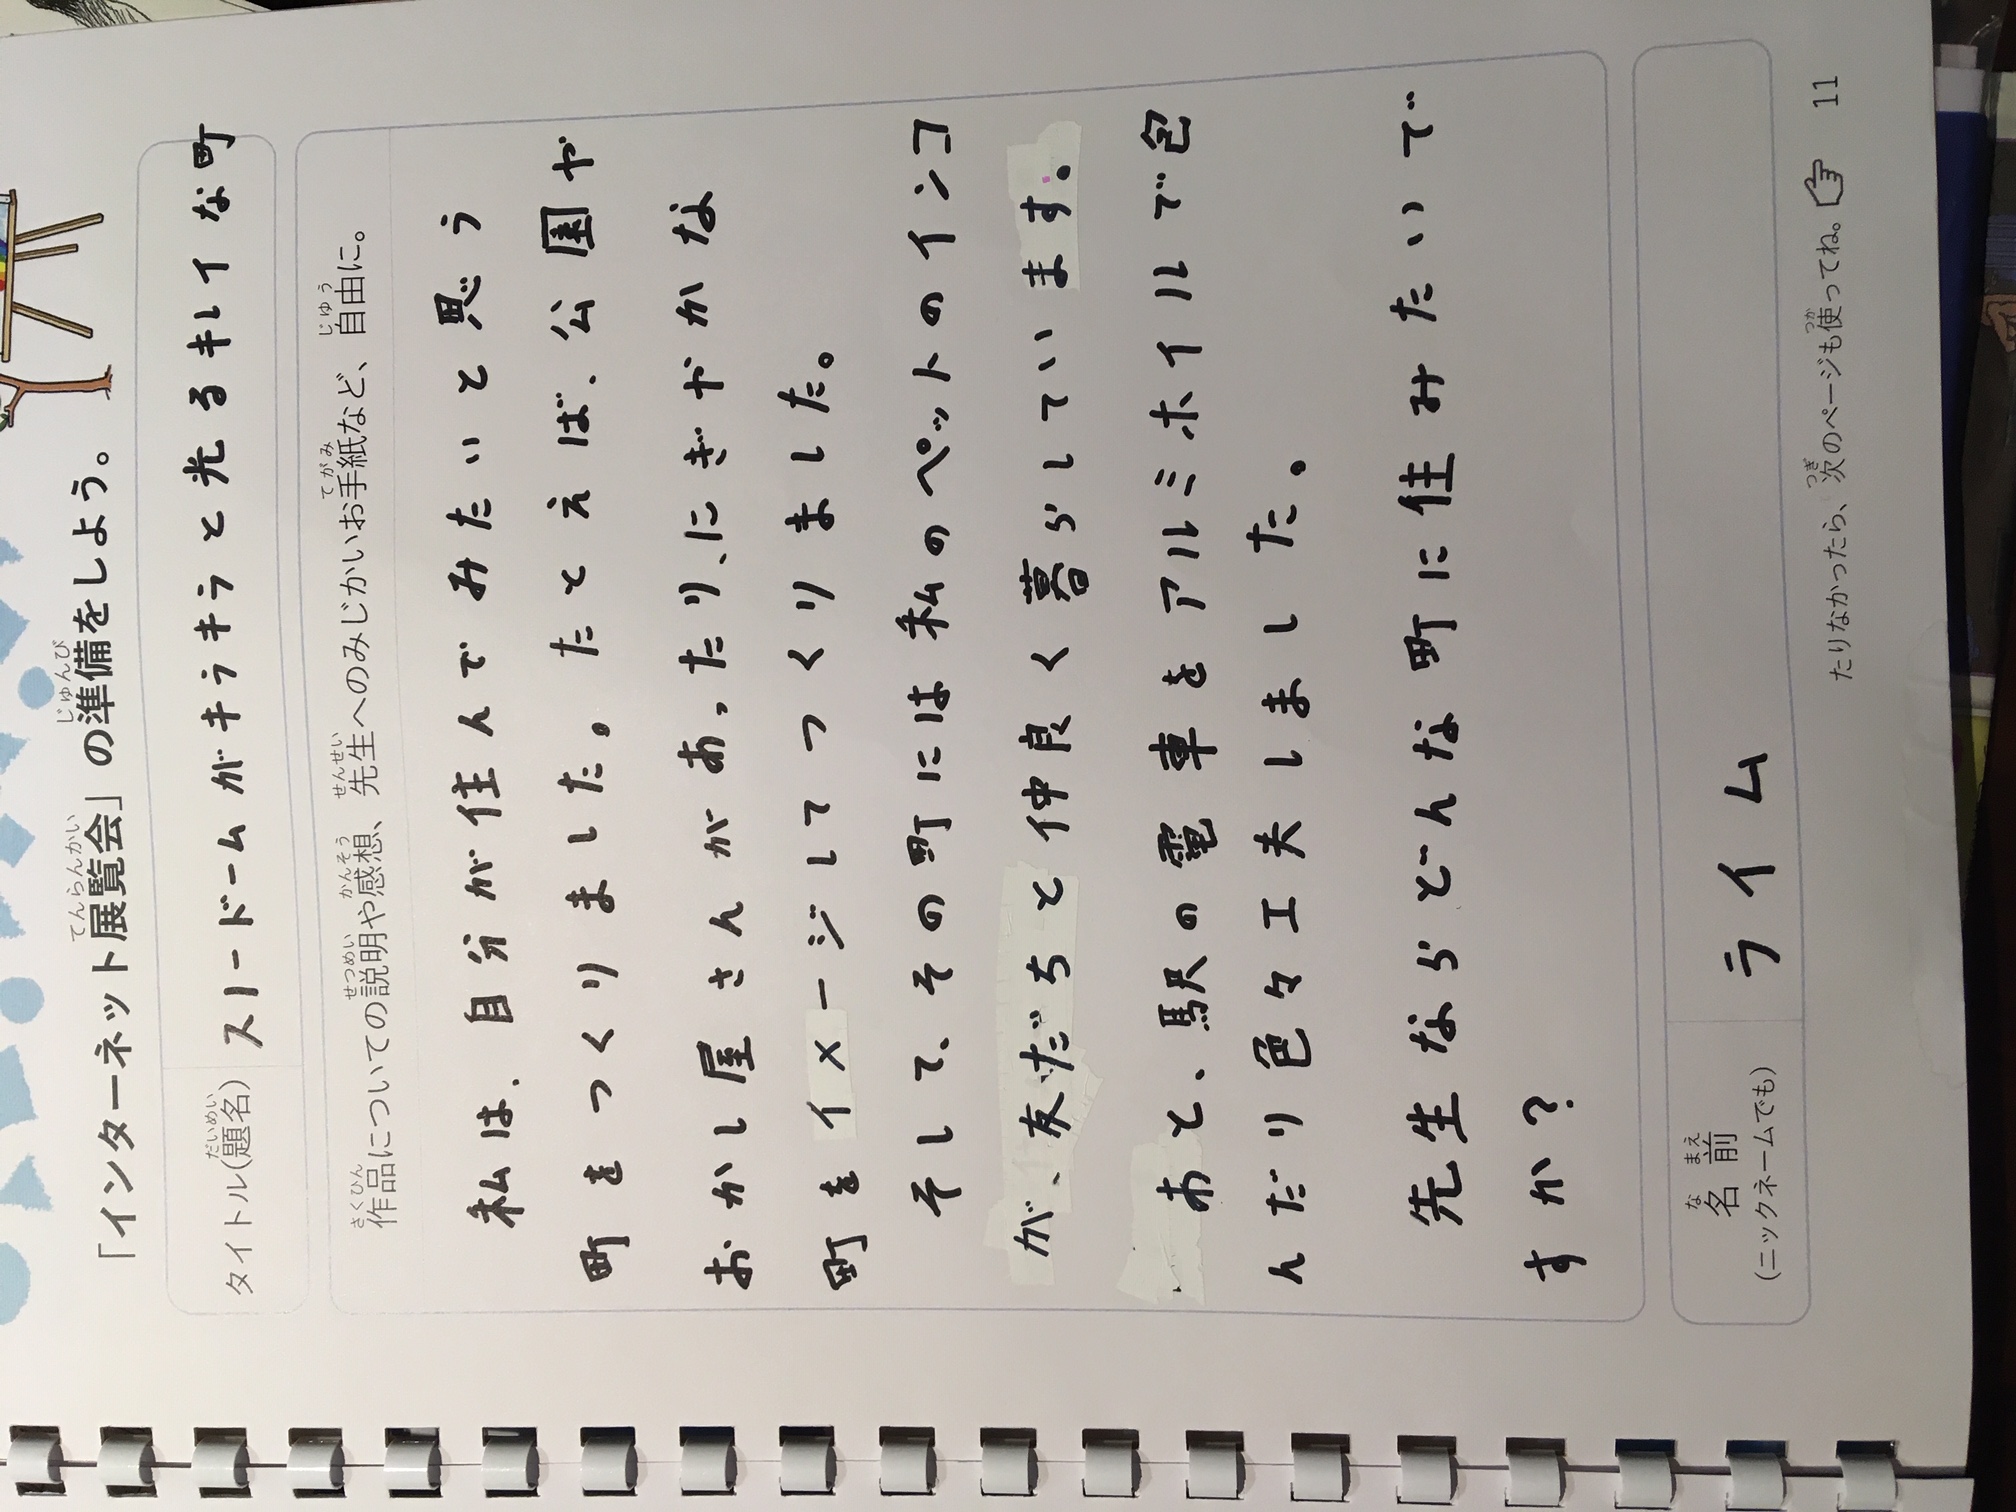 「インターネット展覧会」の準備をしよう。
てんらんかい じゅんび
タイトル(題名) スノードームがキラキラと光るキレイな町
だいめい
作品についての説明や感想、先生へのみじかいお手紙など、自由に。
さくひん せつめい かんそう せんせい てがみ じゆう
私は、自分が住んでみたいと思う
町をつくりました。たとえば、公園や
おかし屋さんがあったり、にぎやかな
町をイメージしてつくりました。
そして、その町には私のペットのインコ
が、友だちと仲良く暮らしています。
あと、駅の電車をアルミホイルで包
んだり色々工夫しました。
先生ならどんな町に住みたいで
すか?
名前 ライム
な まえ
(ニックネームでも)
たりなかったら、次のページも使ってね。
つぎ つか
11